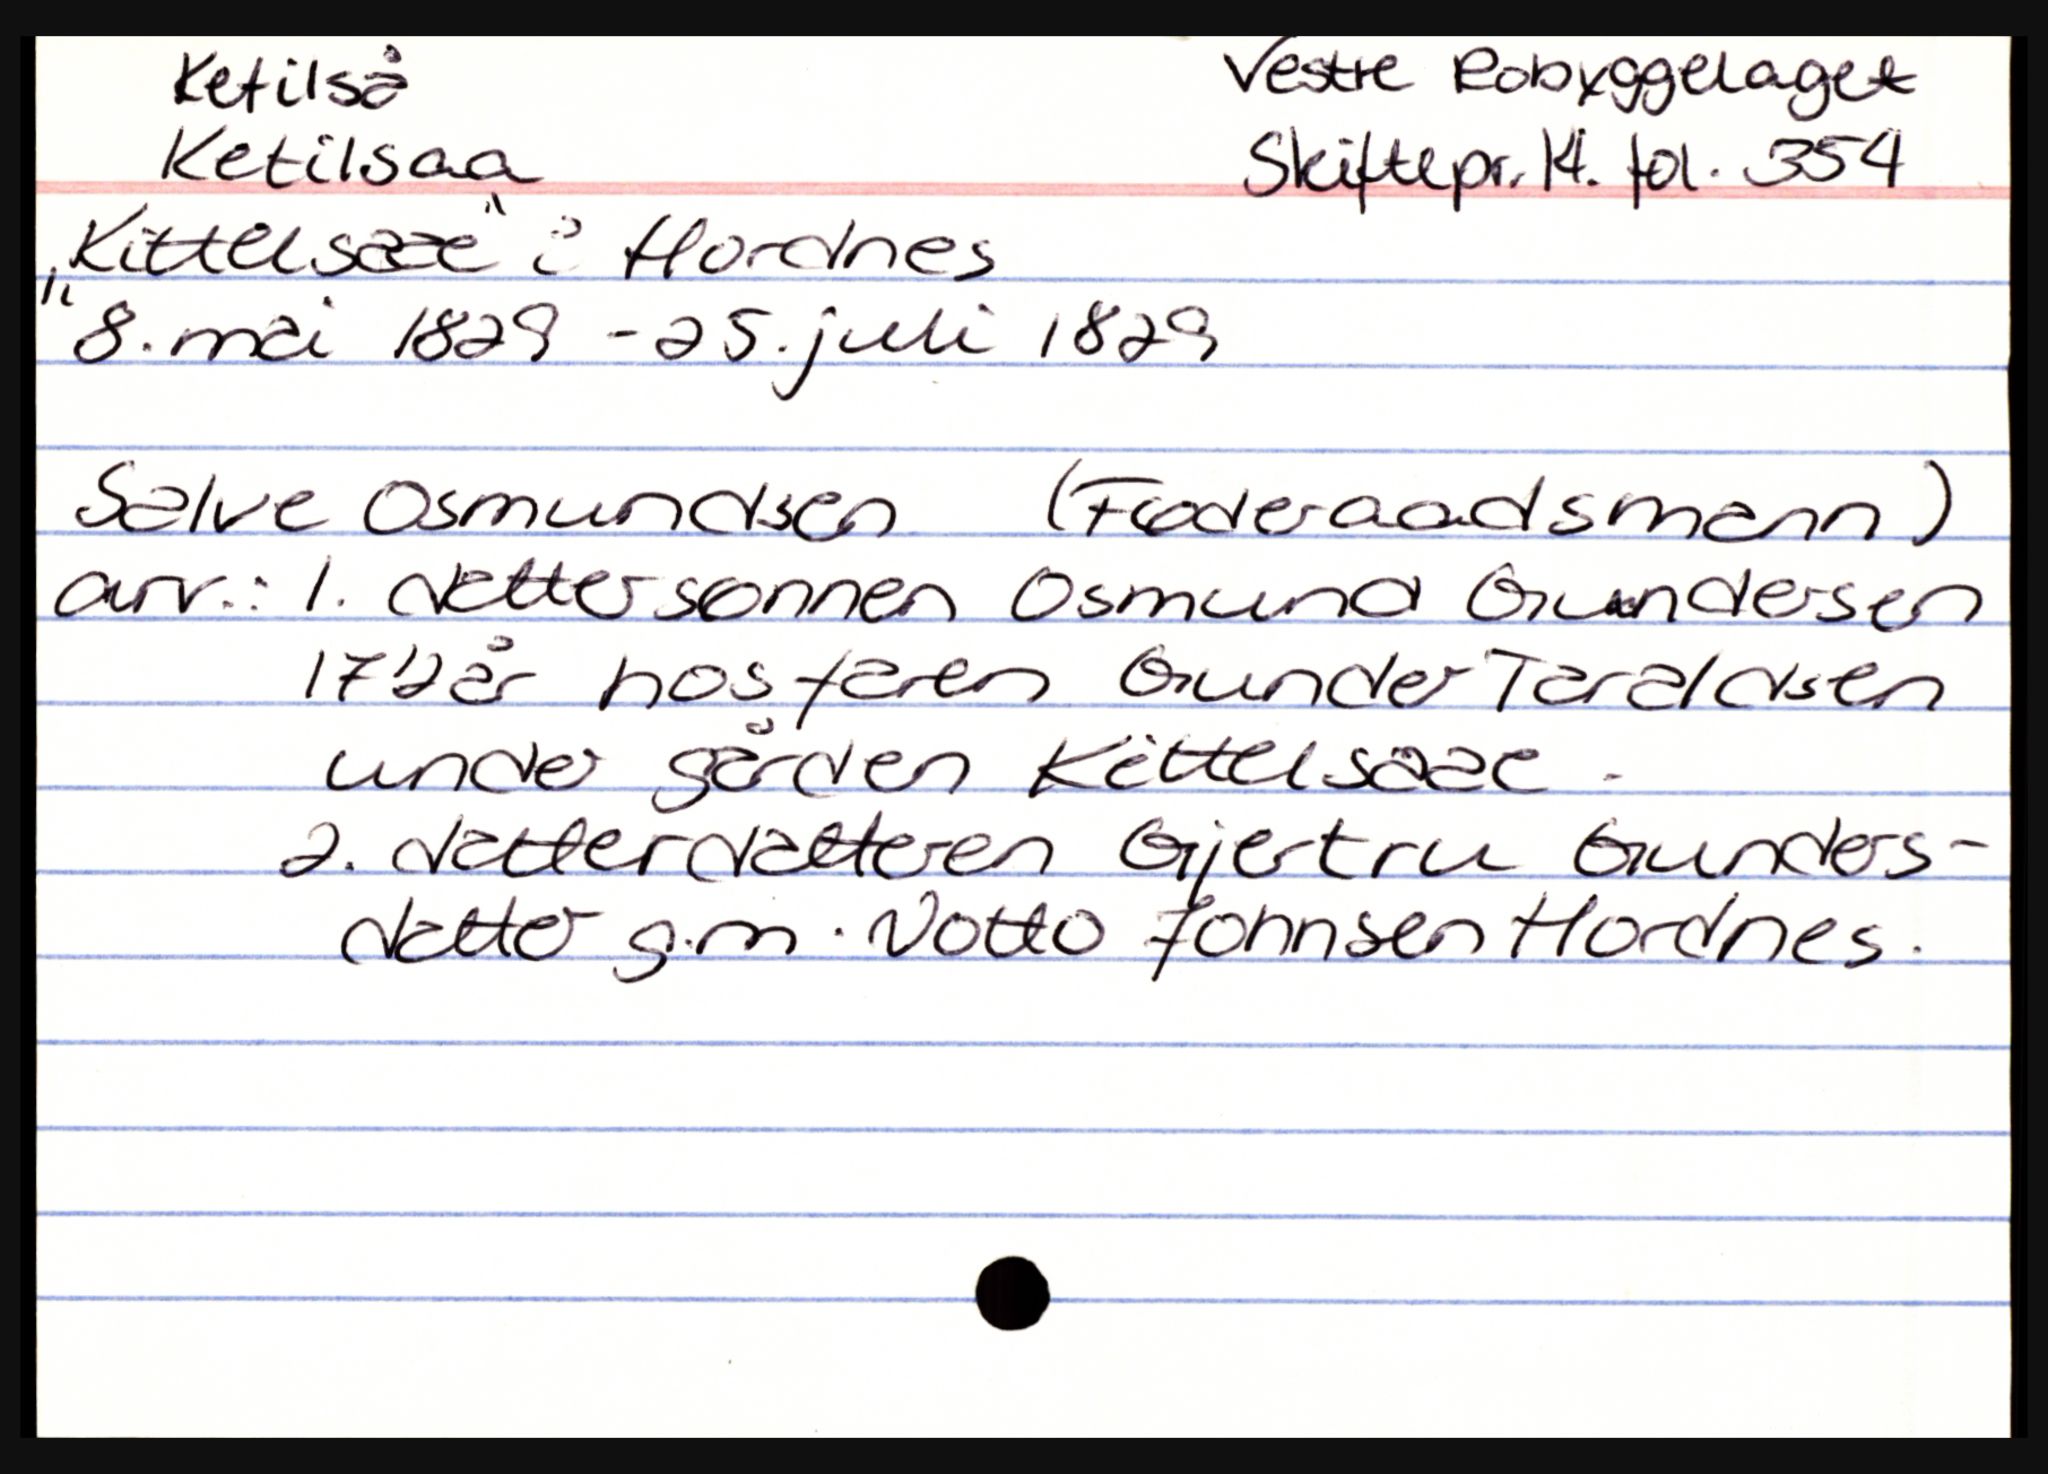 Ketilså
Vestre Robyggelaget
Ketilsaa
Skiftepr. 14. fol. 354
„Kittelsaae“ i Hordnes
8. mai 1829 - 25. juli 1829
Salve Osmundsen (Foderaadsmann)
arv.: 1. dattersønnen Osmund Gundersen
17 1/2 år hos faren Gunder Taraldsen
under gården Kittelsaae.
2. datterdatteren Gjertru Gunders-
datter g.m. Notto Johnsen Hordnes.